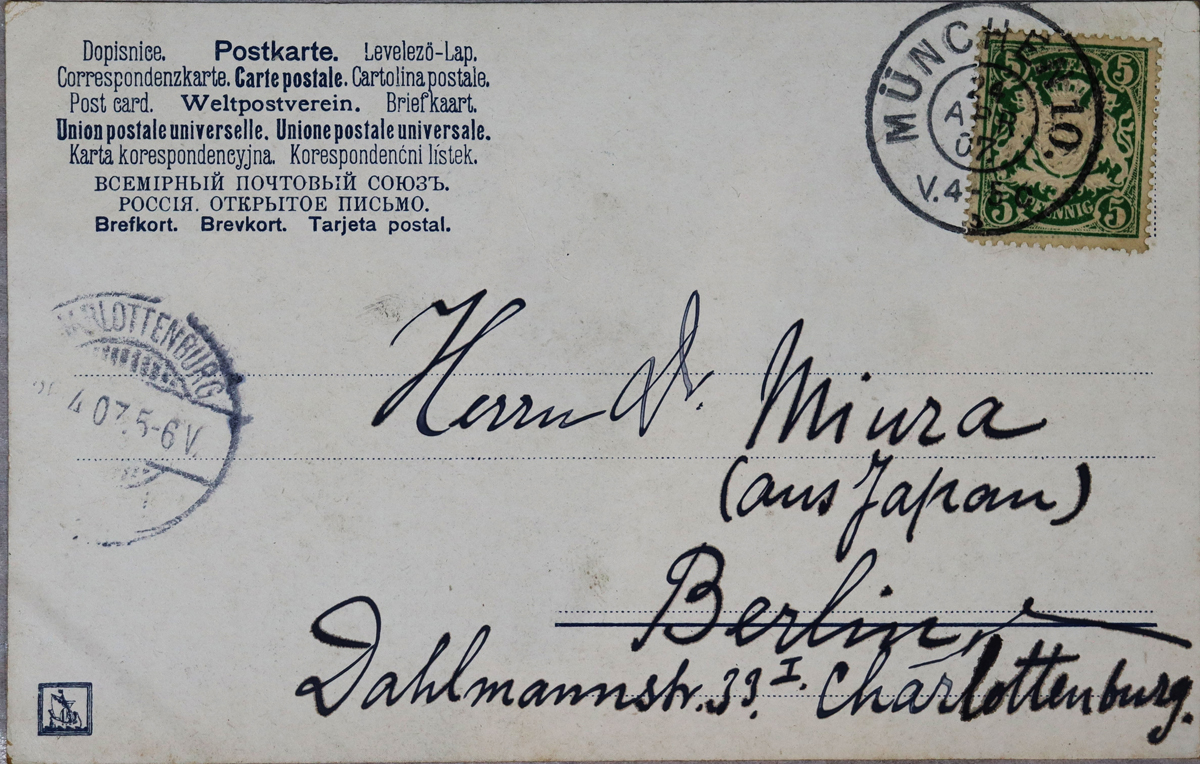 Dopisnice. Postkarte. Levelező-Lap.
Correspondenzkarte. Carte postale. Cartolina postale.
Post card. Weltpostverein. Briefkaart.
Union postale universelle. Unione postale universale.
Karta korespondencyjna. Korespondenćni lístek.
ВСЕМІРНЫЙ ПОЧТОВЫЙ СОЮЗЪ.
РОССІЯ. ОТКРЫТОЕ ПИСЬМО.
Brefkort. Brevkort. Tarjeta postal.
MÜNCHEN 10.
APR
07
V.4-5
5 5
5 PFENNIG 5
CHARLOTTENBURG
4 07. 5-6 V.
Herrn Dr. Miura
(aus Japan)
Berlin,
Dahlmannstr. 33 I. Charlottenburg.